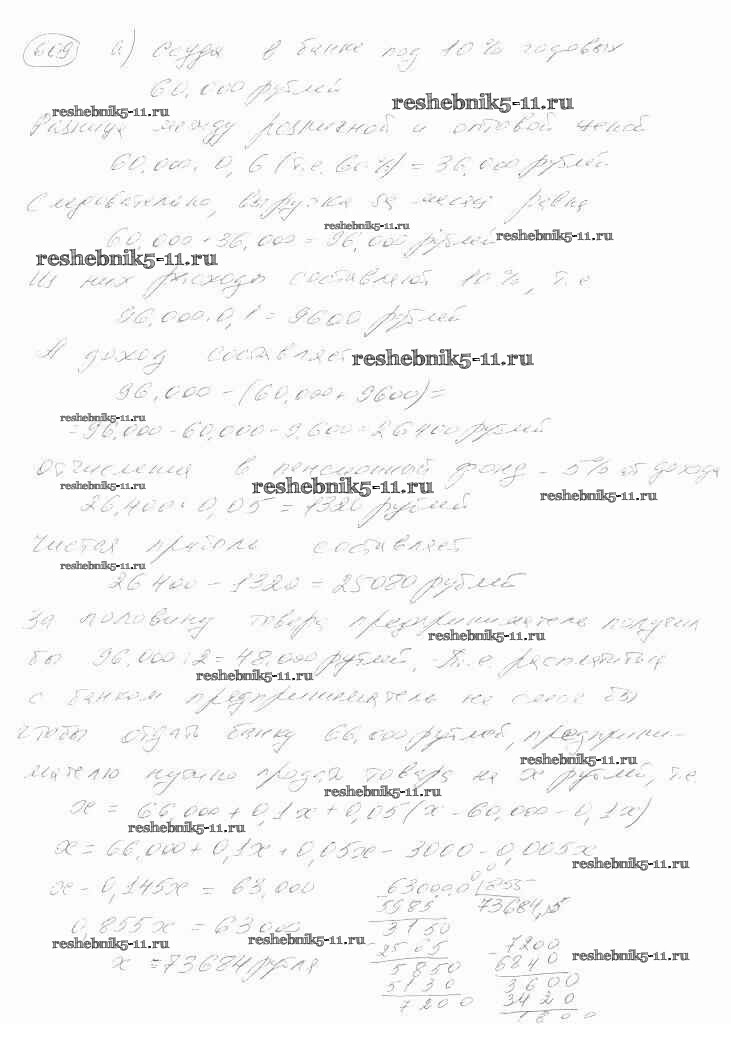 669 а) Ссуда в банке под 10% годовых
60.000 рублей
reshebnik5-11.ru reshebnik5-11.ru
Разница между розничной и оптовой ценой
60.000 · 0,6 (т.е. 60%) = 36.000 рублей
Следовательно, выручка за месяц равна
reshebnik5-11.ru
60.000 + 36.000 = 96.000 рублей reshebnik5-11.ru
reshebnik5-11.ru
Из них расходы составляют 10%, т.е
96.000 · 0,1 = 9600 рублей
А доход составляет reshebnik5-11.ru
96.000 - (60.000 + 9600) =
reshebnik5-11.ru
= 96.000 - 60.000 - 9.600 = 26400 рублей
Отчисления в пенсионный фонд - 5% от дохода
reshebnik5-11.ru reshebnik5-11.ru reshebnik5-11.ru
26.400 · 0,05 = 1320 рублей
Чистая прибыль составляет
reshebnik5-11.ru
26400 - 1320 = 25080 рублей
За половину товара предприниматель получил
reshebnik5-11.ru
бы 96.000 : 2 = 48.000 рублей, т.е. расплатиться
reshebnik5-11.ru
с банком предприниматель не смог бы
чтобы отдать банку 66.000 рублей, предприни-
reshebnik5-11.ru
мателю нужно продать товара на x рублей, т.е.
reshebnik5-11.ru
x = 66.000 + 0,1x + 0,05(x - 60.000 - 0,1x)
reshebnik5-11.ru
x = 66.000 + 0,1x + 0,05x - 3000 - 0,005x
reshebnik5-11.ru
x - 0,145x = 63.000
0,855x = 63000
reshebnik5-11.ru reshebnik5-11.ru reshebnik5-11.ru
x = 73684 рубля
5985
3150
2565
5850
5130
7200
7200
6840
3600
3420
1800